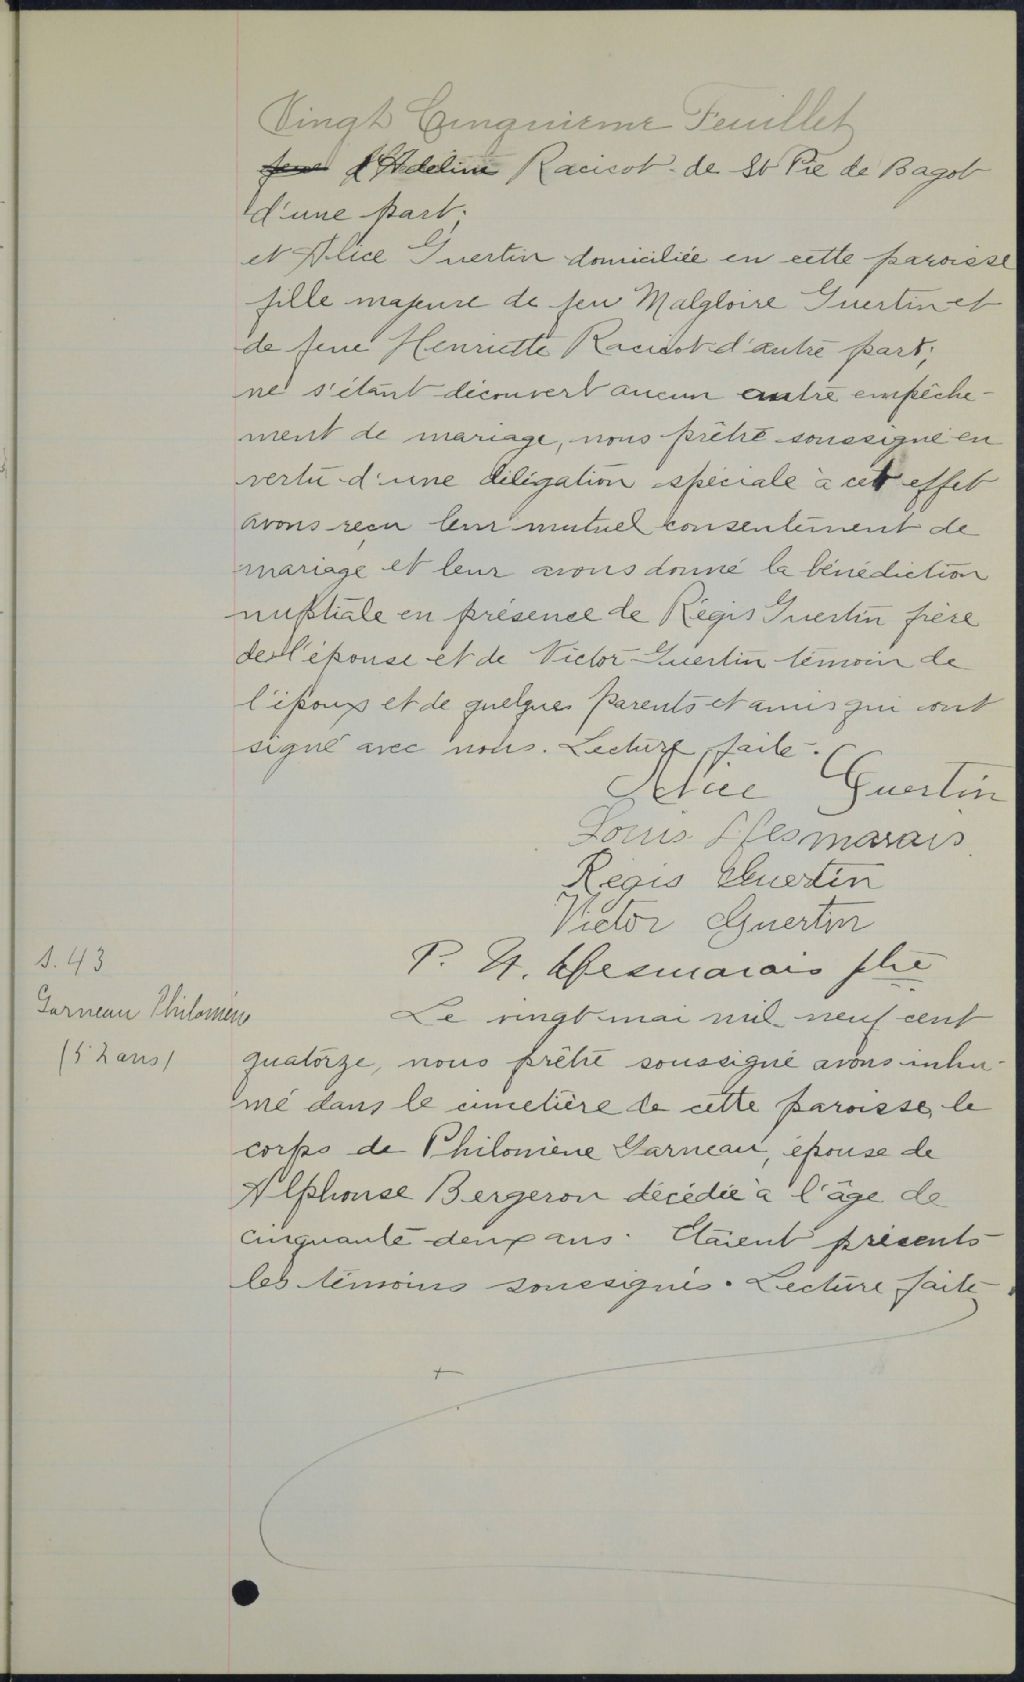 Vingt Cinquième Feuillet
feue d'Adeline Racicot de St Pie de Bagot
d'une part;
et Alice Guertin domiciliée en cette paroisse
fille majeure de feu Malgloire Guertin et
de feue Henriette Racicot d'autre part;
ne s'étant découvert aucun autre empêche-
ment de mariage, nous prêtre soussigné en
vertu d'une délégation spéciale à cet effet
avons reçu leur mutuel consentement de
mariage et leur avons donné la bénédiction
nuptiale en présence de Régis Guertin frère
de l'épouse et de Victor Guertin témoin de
l'époux et de quelques parents et amis qui ont
signé avec nous. Lecture faite.
Alice Guertin
Louis Desmarais
Régis Guertin
Victor Guertin
P. A. Desmarais ptre
S. 43
Garneau Philomène
(52 ans)
Le vingt mai mil neuf cent
quatorze, nous prêtre soussigné avons inhu-
mé dans le cimetière de cette paroisse, le
corps de Philomène Garneau, épouse de
Alphonse Bergeron décédée à l'âge de
cinquante-deux ans. Etaient présents
les témoins soussignés. Lecture faite.